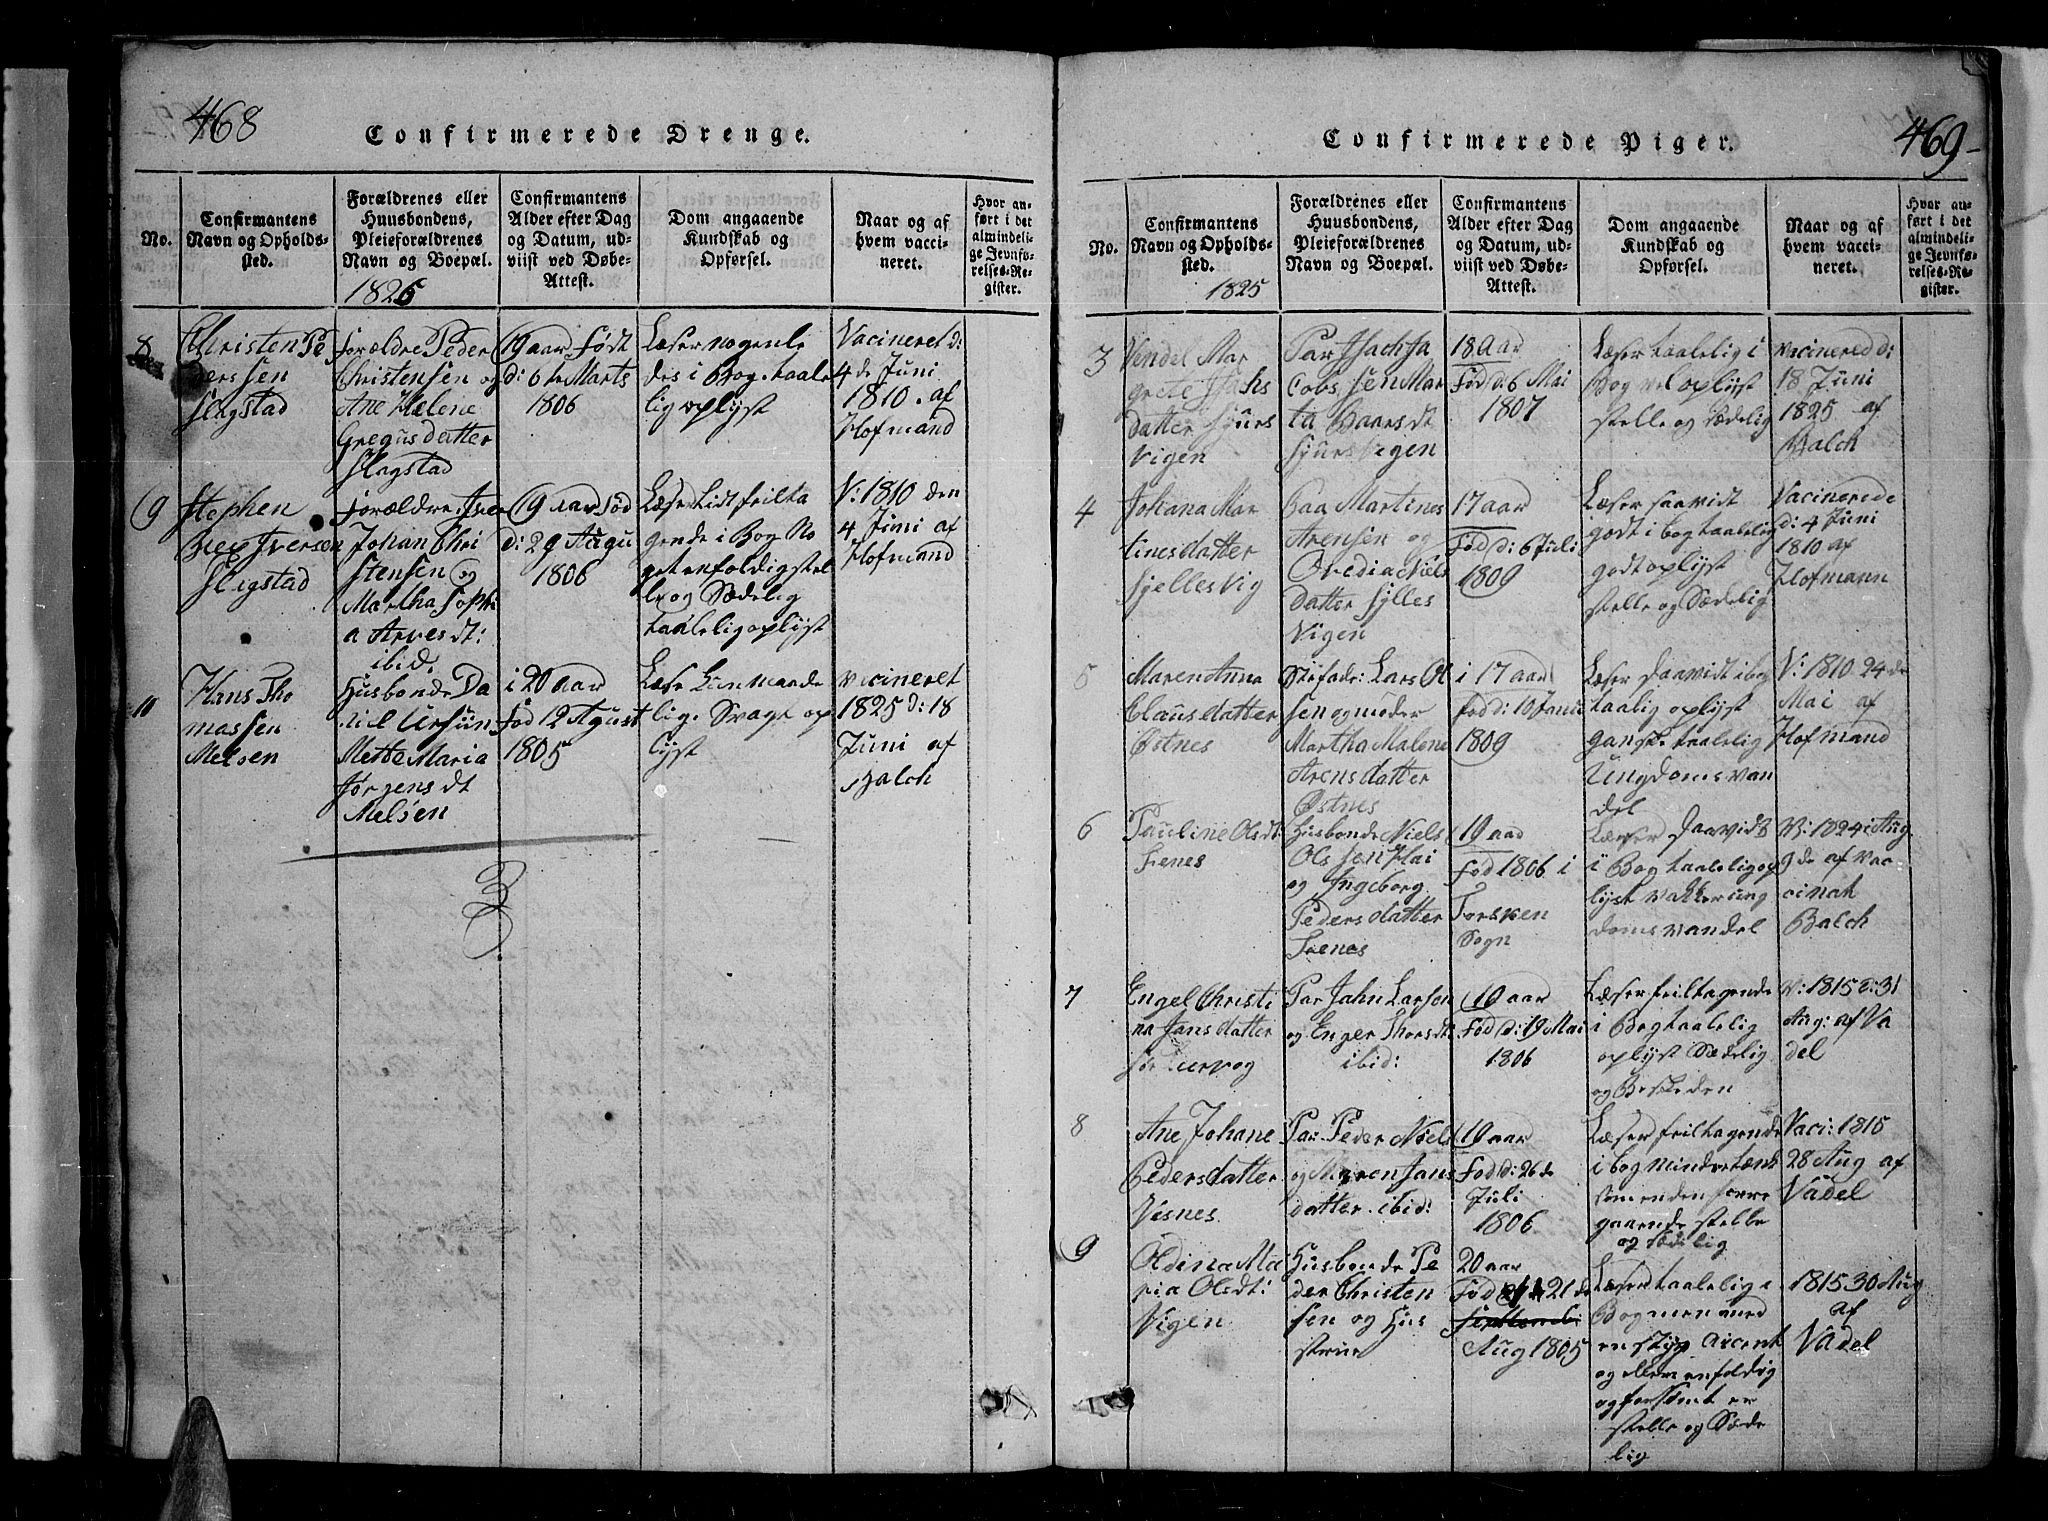 468
Confirmerede Drenge.
No.
Confirmantens
Navn og Opholds-
sted.
Forældrenes eller
Huusbondens,
Pleieforældrenes
Navn og Boepæl.
1826
Confirmantens
Alder efter Dag
og Datum, ud-
viist ved Døbe-
Attest.
Dom angaaende
Kundskab og
Opførsel.
Naar og af
hvem vacci-
neret.
Hvor an-
ført i det
almindeli-
ge Jevnfø-
relses-Re-
gister.
8
Christen Pe
derssen
Slagstad
Forældre Peder
Christensen og
Ane Helene
Gregusdatter
Slagstad
19 aar Født
d: 6te Marts
1806
Læser nogenle
des i Bog. taale
lig oplyst
Vacineret d:
4de Juni
1810. af
Hofmand
9
Stephen
Iversen
Slagstad
Forældre: Iver
Johan Chri
stensen og
Martha Soph
a Arnesdt:
ibid.
19 aar fød
d: 29 Augu
1806
Læser Lidt feilta
gende i Bog No
get enfoldig stel
le og Sædelig
taalelig oplyst
V: 1810 den
4 Juni af
Hofmand
10
Hans Tho
massen
Melsen
Husbonde Da
niel Ursiin
Mette Maria
Jørgensdt
Melsen
i 20 aar
Fød 12 Agust
1805
Læse kun maade
lig. Svagt op
lyst
Vacineret
1825 d: 18
Juni af
Balch
469
Confirmerede Piger.
No.
Confirmantens
Navn og Opholds-
sted.
1825
Forældrenes eller
Huusbondens,
Pleieforældrenes
Navn og Boepæl.
Confirmantens
Alder efter Dag
og Datum, ud-
viist ved Døbe-
Attest.
Dom angaaende
Kundskab og
Opførsel.
Naar og af
hvem vacci-
neret.
Hvor an-
ført i det
almindeli-
ge Jevnfø-
relses-Re-
gister.
3
Vendel Mar
grete Isachs
datter Sjurs
Vigen
Par Isach Ja
cobssen Mar
ta Baarsdt
Sjursvigen
18 Aar
Fød d: 6 Mai
1807
Læser taalelig i
Bog vel oplyst
stelle og Sædelig
Vacinered d:
18 Juni
1825 af
Balch
4
Johana Mar
tinesdatter
Sjellesvig
Baa Martines
Arensen og
Ovedia Niels
datter Sjlles
Vigen
17 aar
Fød d: 6 Juli
1809
Læser saavidt
godt i bog taalelig
godt oplyst
stelle og Sædelig
Vacinerede
d: 4 Juni
1810 af
Hofmann
5
Maren Anna
Clausdatter
Østnes
Stifade: Lars Ol
sen og moder
Martha Malene
Arensdatter
Østnes
i 17 aar
Fød d: 10 Janu
1809
Læser saavidt i bog
taalig oplyst
ganske taalelig
Ungdomsvan
del
V: 1810 24 de
Mai af
Hofmand
6
Pauline Olsdt:
Lenes
Husbonde Niels
Olssen Hai
og Ingeborg
Pedersdatter
Lenes
19 aar
Fød 1806 i
Torsken
Sogn
Læser saavidt
i Bog taalelig op
lyst vakker ung
domsvandel
V: 1824 i Aug
9 de af vac
cinat
Balch
7
Engel Christi
na Jansdatter
Par Jahn Larsen
og Enger Thorsdt:
ibid:
19 aar
Fød d: 19 Mai
1806
Læser feiltagende
i Bog taalelig
oplyst Sædelig
og Beskeden
V: 1815 d: 31
Aug: af Va
del
8
Ane Johane
Pedersdatter
Vesnes
Par Peder Niels
og Maren Jans
datter ibid:
19 aar
Fød d: 26 de
Juli
1806
Læser feiltagende
i bog mindre
som enden forre
gaaende stelle
og sædelig
Vaci: 1815
28 Aug af
Vadel
9
Oldina Ma
ria Olsdt:
Vigen
Husbonde Pe
der Christen
sen og Hus
strue
20 aar
Fød 21 de
Septembr
Aug 1805
Læser taalelig i
Bog men med
en styg Accent
og ellers enfoldig
og forsømt er
stelle og Sæde
lig
1815 30 Aug
af
Vadel